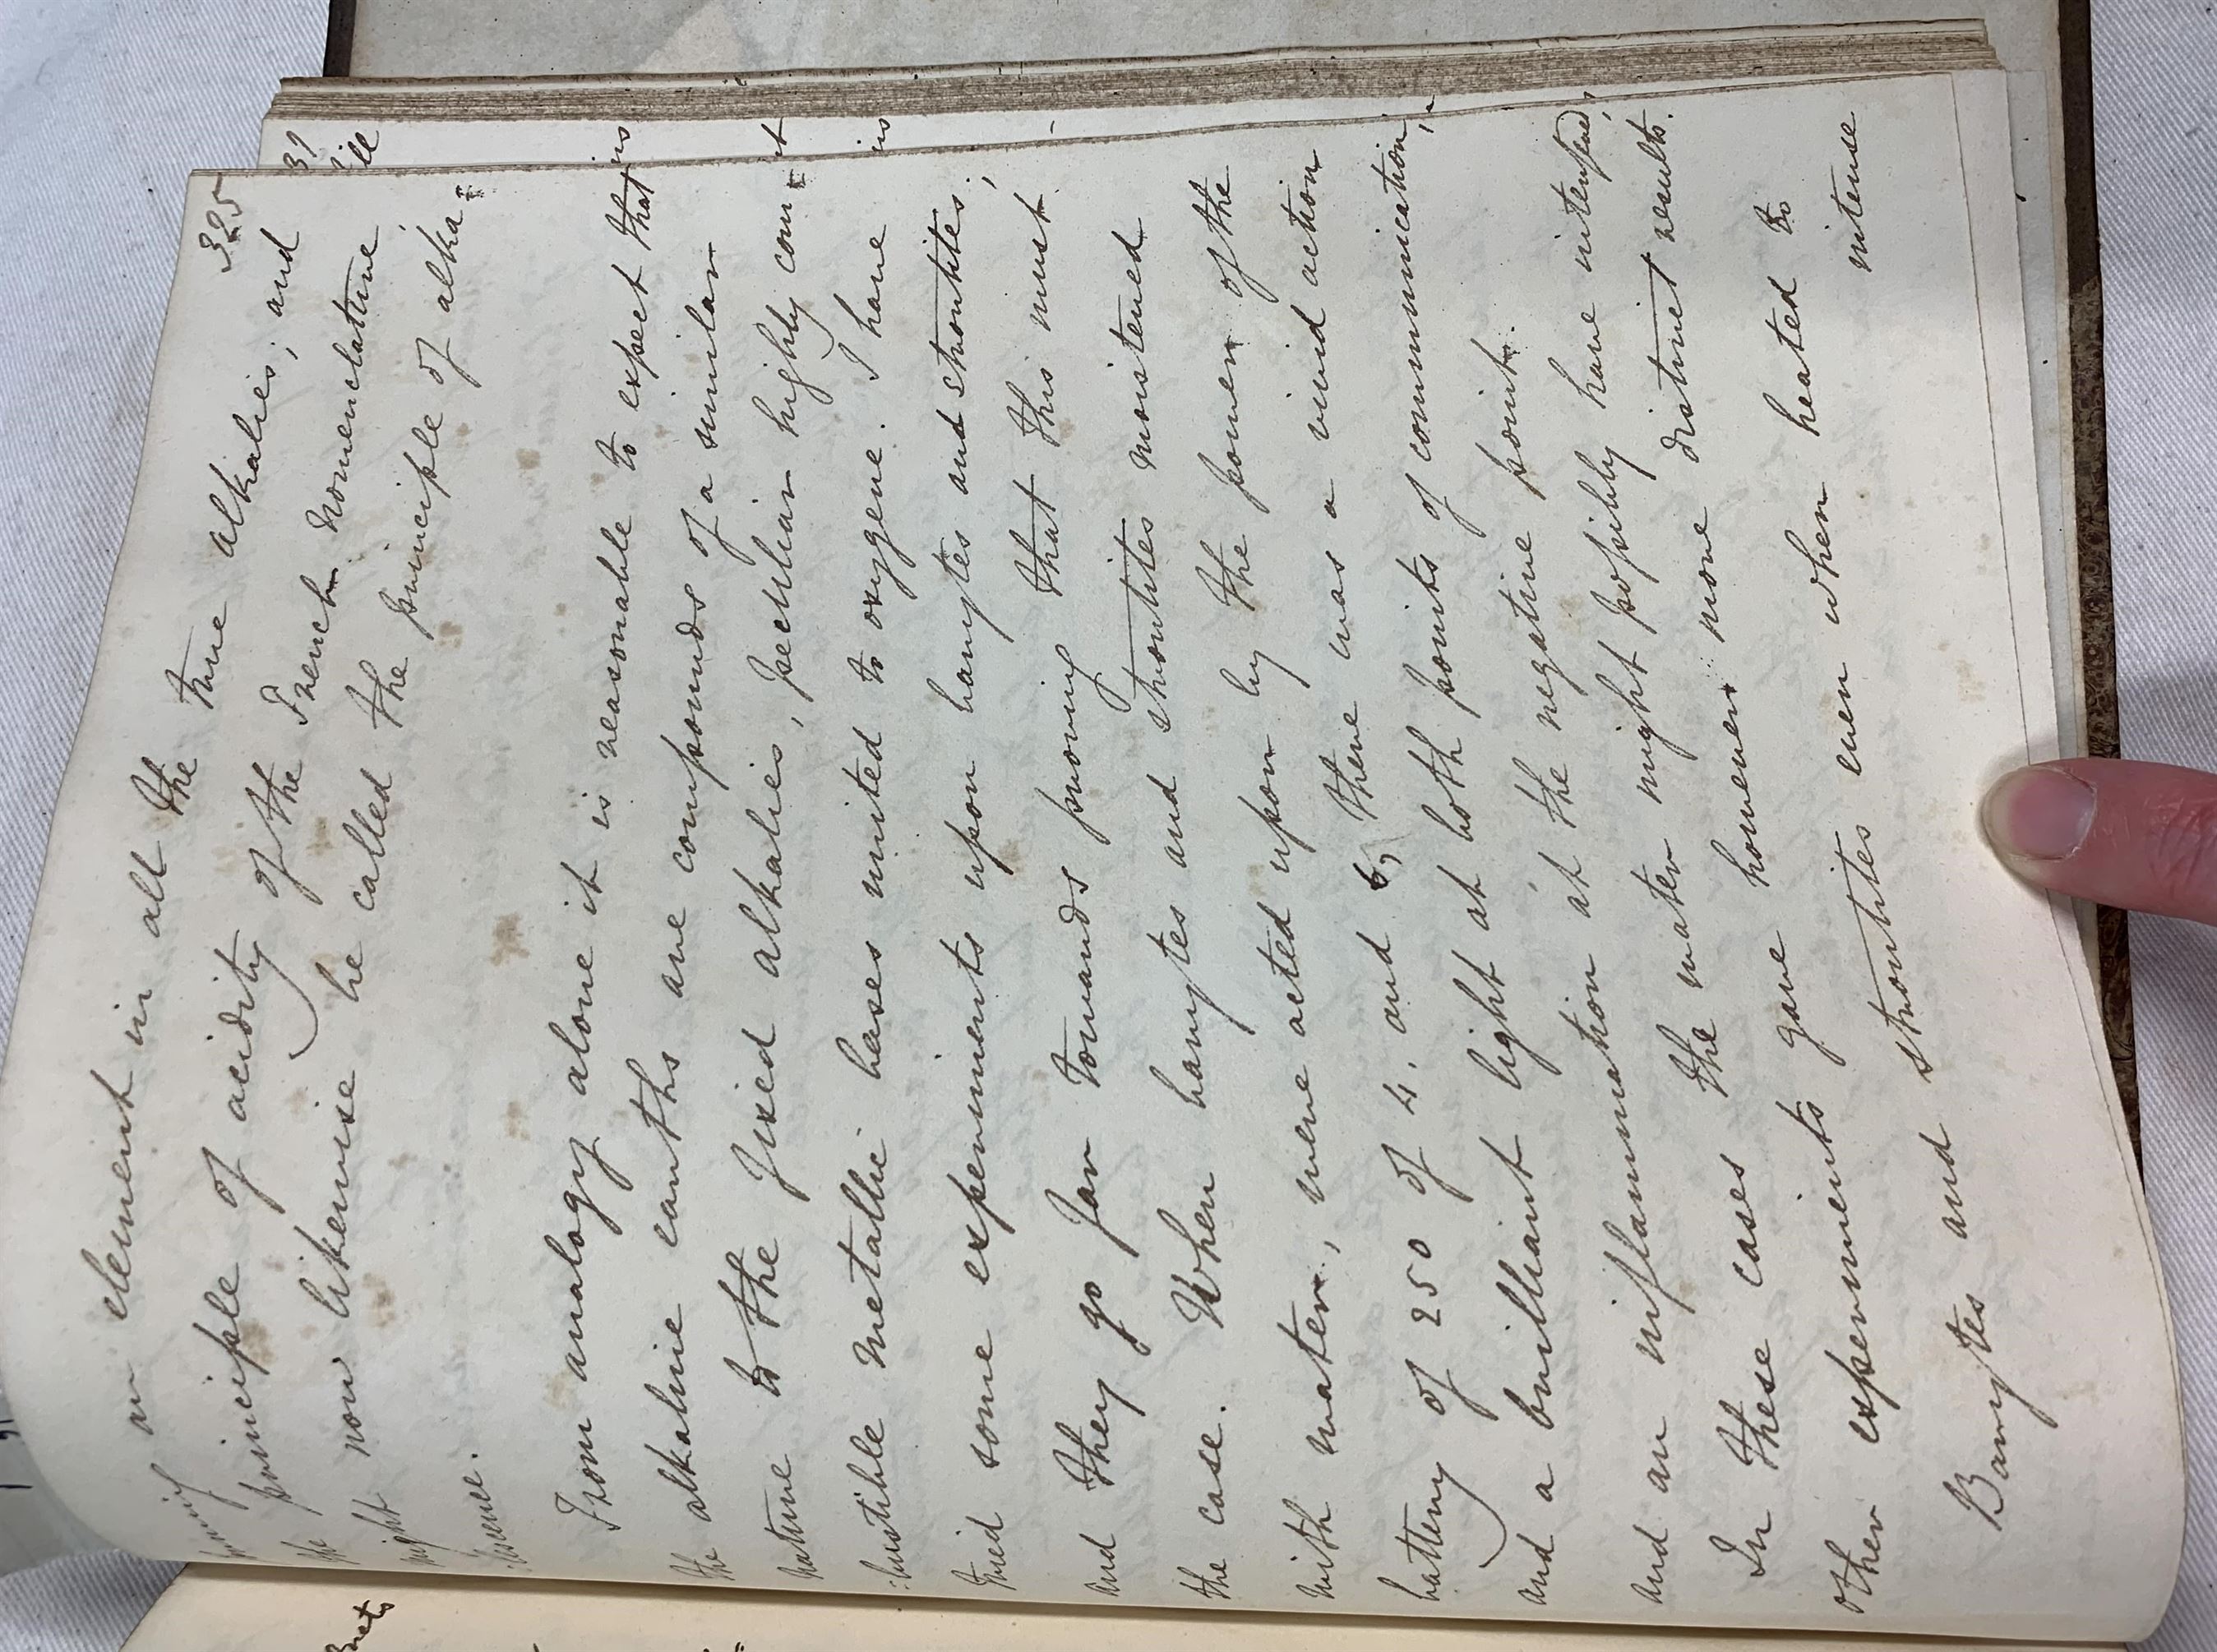 325
forming an element in all the true alkalies; and
the principle of acidity of the French nomenclature
might now likewise be called the principle of alka=
:lescence.
From analogy alone it is reasonable to expect that
the alkaline earths are compounds of a similar
nature to the fixed alkalies, peculiar highly com=
:bustible metallic bases united to oxygene. I have
tried some experiments upon barytes and strontites;
and they go far towards proving that this must
the case. When barytes and strontites moistened
with water, were acted upon by the power of the
battery of 250 of 4. and 6, there was a vivid action
and a brilliant light at both points of communication,
and an inflammation at the negative point.
In these cases the water might possibly have interfered,
other experiments gave however more distinct results.
Barytes and strontites even when heated to
intense
31
ill
is
it
is